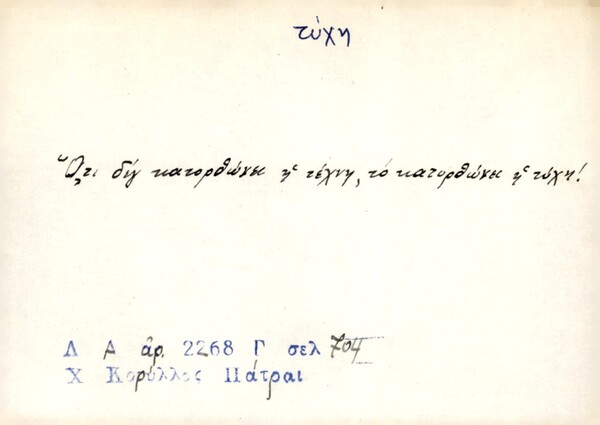 τύχη
Ὅ,τι δέν κατορθώνει ἡ τέχνη, τό κατορθώνει ἡ τύχη!
Λ Α ἀρ. 2268 Γ σελ 704
Χ Κορύλλος Πάτραι